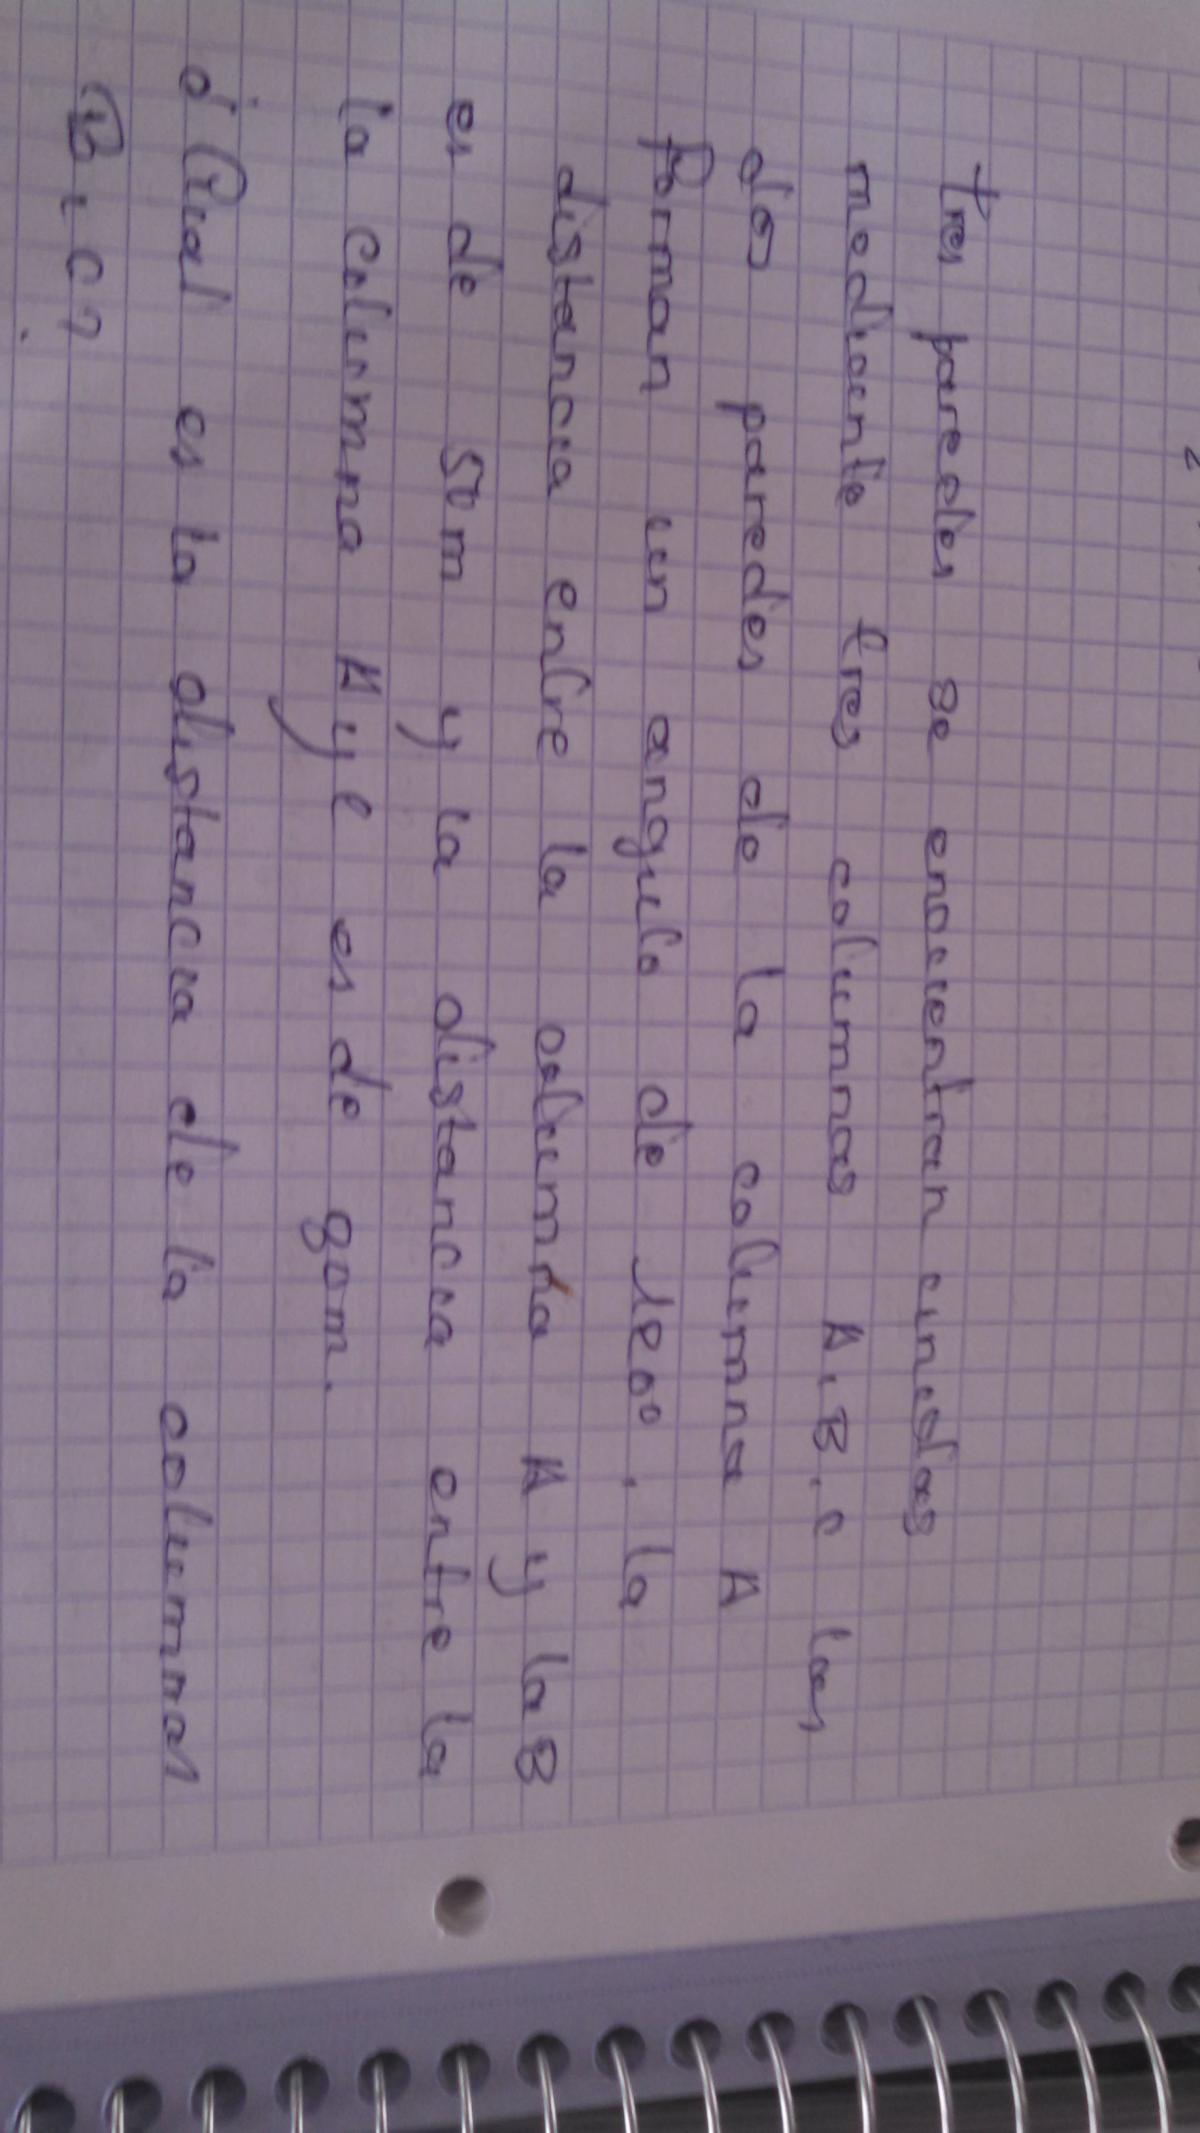 tres paredes se encuentran unidas
mediante tres columnas A, B, C las
dos paredes de la columna A
forman un angulo de 120°, la
distancia entre la columna A y la B
es de 50m y la distancia entre la
la columna A y C es de 90m.
¿Cual es la distancia de la columnas
B y C?